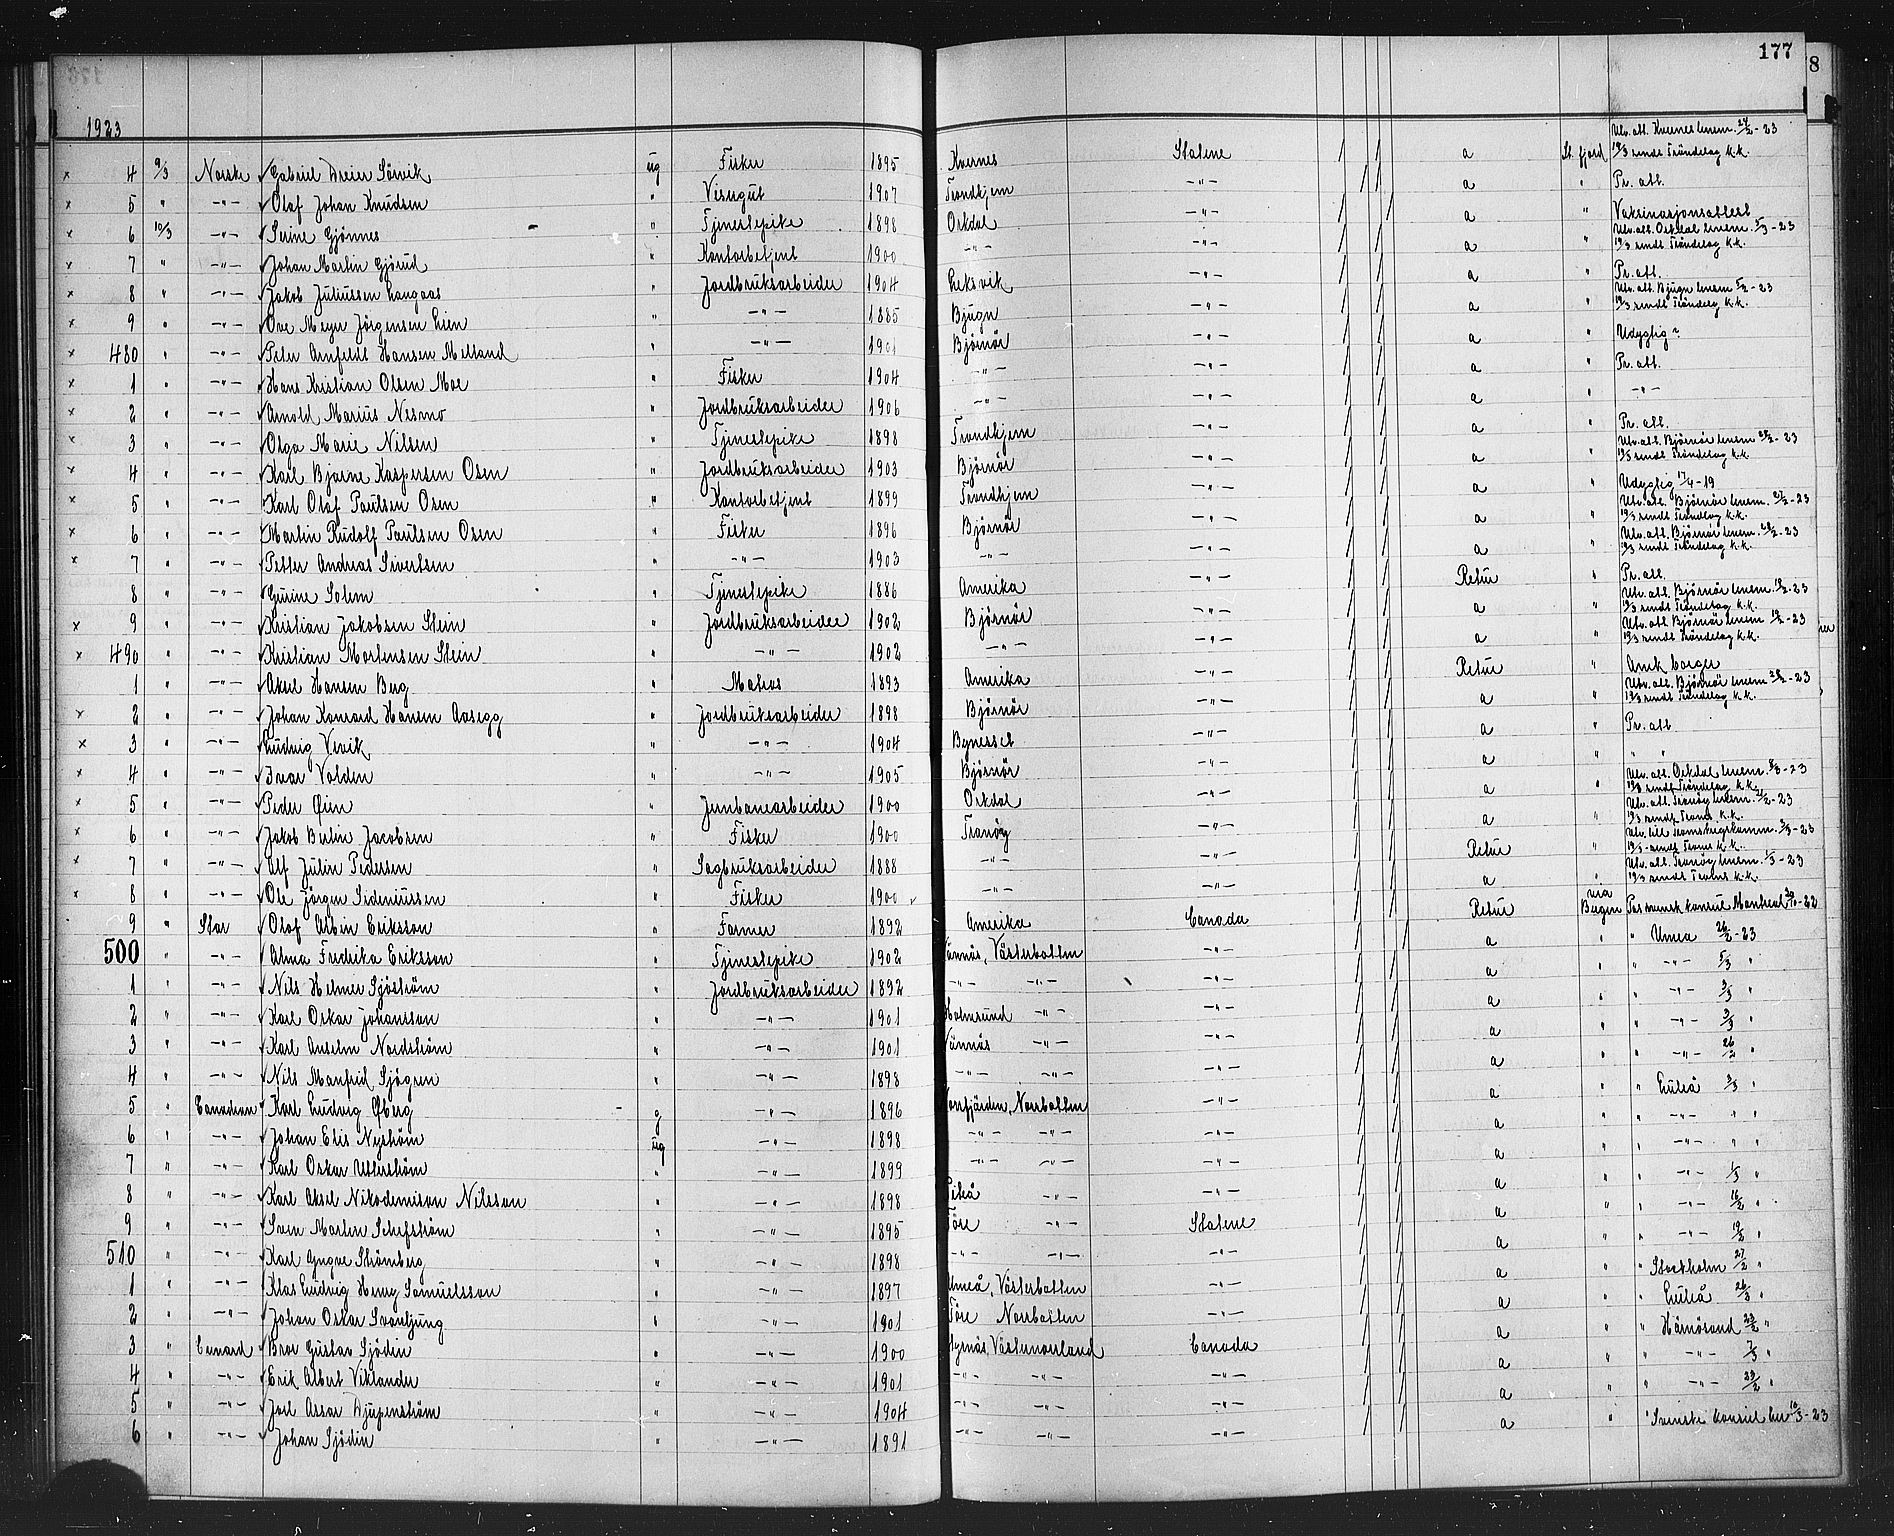 177
8
1923
Utv. att. Kvernes lensm. 24/2 - 23
x 4 9/3 Norske Gabriel Dreier Sörvik ug Fisker 1895 Kvernes Statene a St. fjord 19/3 sendt Tröndelag k.k.
x 5 " -"- Olaf Johan Knudsen " Visergut 1907 Trondhjem -"- a " Pr. att.
x 6 10/3 -"- Serine Gjönnes " Tjenestepike 1898 Orkdal -"- a " Vaksinasjonsattest
Utv. att. Orkdal lensm. 5/3 - 23
x 7 " -"- Johan Martin Gjörud " Kontorbetjent 1900 -"- -"- a " 19/3 sendt Tröndelag k.k.
x 8 " -"- Jakob Juliussen Langaas " Jordbruksarbeider 1904 Leksvik -"- a " Pr. att.
Utv. att. Bjugn lensm 5/2 - 23
x 9 " -"- Ove Meyer Jörgensen Lien " -"- 1885 Bjugn -"- a " 19/3 sendt Tröndelag k.k.
x 480 " -"- Peter Arnfeldt Hansen Melland " -"- 1901 Björnör -"- a " Udygtig
x 1 " -"- Hans Kristian Olsen Moe " Fisker 1904 -"- -"- a " Pr. att.
x 2 " -"- Arnold Marius Nesmo " Jordbruksarbeider 1906 -"- -"- a " -"-
x 3 " -"- Olga Marie Nilsen " Tjenestepike 1898 Trondhjem -"- a " Pr. att.
Utv. att. Björnör lensm 28/2 - 23
x 4 " -"- Karl Bjarne Kaspersen Osen " Jordbruksarbeider 1903 Björnör -"- a " 19/3 sendt Tröndelag k.k.
x 5 " -"- Karl Olaf Paulsen Osen " Kontorbetjent 1899 Trondhjem -"- a " Udygtig 17/4 - 19
Utv. att. Björnör lensm. 27/2 - 23
x 6 " -"- Martin Rudolf Paulsen Osen " Fisker 1896 Björnör -"- a " 19/3 sendt Tröndelag k.k.
Utv. att. Björnör lensm. 28/2 - 23
x 7 " -"- Petter Andreas Sivertsen " -"- 1903 -"- -"- a " 19/3 sendt Tröndelag k.k.
8 " -"- Gurine Solem " Tjenestepike 1886 Amerika -"- Retur " Pr. att.
Utv. att. Björnör lensm. 19/2 - 23
x 9 " -"- Kristian Jakobsen Stein " Jordbruksarbeider 1902 Björnör -"- a " 19/3 sendt Tröndelag k.k.
Utv. att Björnör lensm 19/2 - 23
x 490 " -"- Kristian Mortensen Stein " -"- 1902 -"- -"- a " 19/3 sendt Tröndelag k.k.
1 " -"- Aksel Hansen Berg " Matros 1893 Amerika -"- Retur " Amk. borger
Utv. att. Björnör lensm 28/2 - 23
x 2 " -"- Johan Konrad Hansen Aasegg " Jordbruksarbeider 1898 Björnör -"- a " 19/3 sendt Tröndelag k.k.
x 3 " -"- Ludvig Vevik " -"- 1904 Bynesset -"- a " Pr. att
x 4 " -"- Ivar Volden " -"- 1905 Björnör -"- a " " "
Utv. att. Orkdal lensm. 8/3 - 23
x 5 " -"- Peder Öien " Jernbanearbeider 1900 Orkdal -"- a " 19/3 sendt Tröndelag k.k.
Utv. att. Tranöy lensm. 21/2 - 23
x 6 " -"- Jakob Berlin Jacobsen " Fisker 1900 Tranöy -"- a " 19/3 sendt Troms k.k.
x 7 " -"- Alf Julin Pedersen " Sagbruksarbeider 1888 -"- -"- Retur " 19/3 sendt Troms k.k.
Utv. att. Tranöy lensm. 1/3 - 23
x 8 " -"- Ole Jörgen Sideniussen " Fisker 1900 -"- -"- a " 19/3 sendt Troms k.k.
9 " Star Olof Albin Eriksson " Farmer 1892 Amerika Canada Retur via Bergen Pas svensk konsul Montreal 30/10 - 22
500 " -"- Alma Fredrika Eriksson " Tjenestepike 1902 Vännäs, Västerbotten -"- a " " Umea 26/2 - 23
1 " -"- Nils Helmer Sjöström " Jordbruksarbeider 1892 -"- -"- -"- a " " -"- 5/3 "
2 " -"- Karl Oskar Johansson " -"- 1901 Holmsund -"- -"- a " " -"- 3/3 "
3 " -"- Karl Anselm Nordström " -"- 1901 Vännäs -"- -"- a " " -"- 3/3 "
4 " -"- Nils Manfrid Sjögren " -"- 1898 -"- -"- -"- a " " -"- 26/2 "
5 " Canadian Karl Ludvig Öberg g -"- 1896 Norrbotten -"- a " " Luleå 3/3 "
6 " -"- Johan Elis Nyström ug -"- 1898 -"- -"- -"- a " " -"- " "
7 " -"- Karl Oskar Utterström " -"- 1899 -"- -"- -"- a " " -"- " "
8 " -"- Karl Aksel Nikodemison Nilsson " -"- 1898 Piteå -"- -"- a " " -"- 1/3 "
9 " -"- Sven Martin Schefström " -"- 1895 Töre -"- Statene a " " -"- 16/2 "
510 " -"- Karl Yngve Strömberg " -"- 1898 -"- -"- -"- a " " -"- 19/2 "
1 " -"- Klas Ludvig Henry Samuelsson " -"- 1897 Umeå, Västerbotten -"- a " " Stockholm 27/2 "
2 " -"- Johan Oskar Svanljung " -"- 1901 Töre Norrbotten -"- a " " Luleå 26/2 "
3 " Cunard Bror Gustav Sjödin " -"- 1900 Västernorrland Canada a " " Härnösand 22/2 "
4 " -"- Erik Albert Viklander " -"- 1901 -"- -"- -"- a " " -"- 7/3 "
5 " -"- Joel Assar Djupenström " -"- 1904 -"- -"- -"- a " " -"- 23/2 "
6 " -"- Johan Sjödin " -"- 1891 -"- -"- -"- a " " Svenske konsul her 10/3 - 23